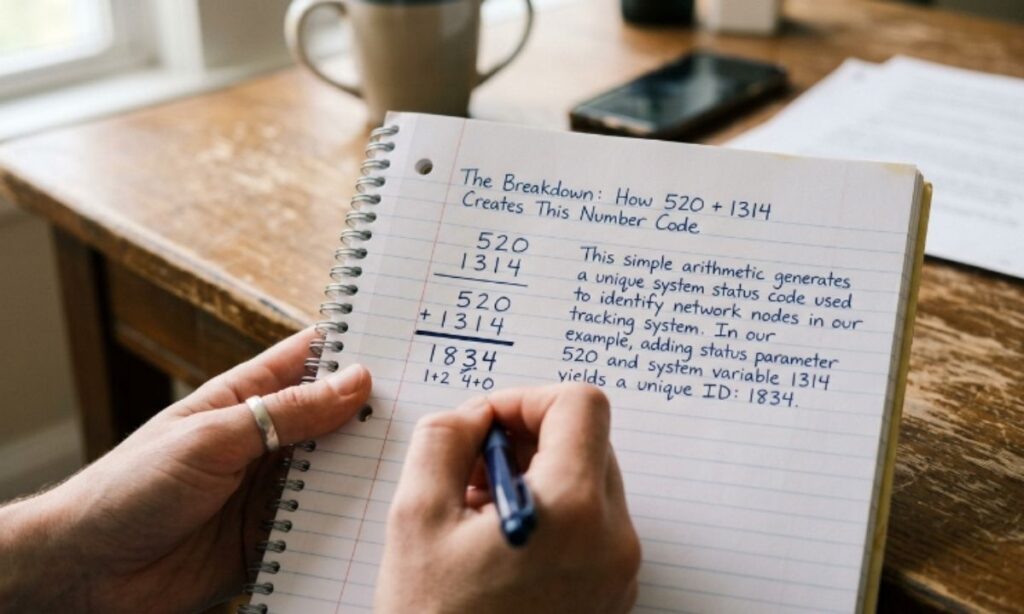 The Breakdown: How 520 + 1314
Creates This Number Code
520
1314
520
+ 1314
1834
1+2 4+0
This simple arithmetic generates
a unique system status code used
to identify network nodes in our
tracking system. In our
example, adding status parameter
520 and system variable 1314
yields a unique ID: 1834.